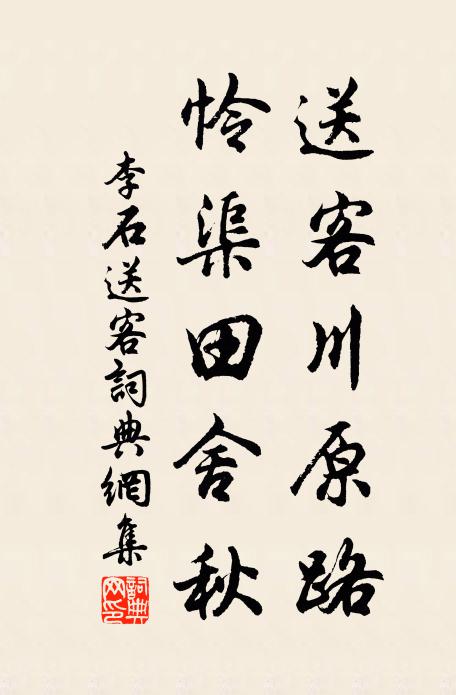 送客川原路
怜渠田舍秋
李石送客詞典網集
詞典網印